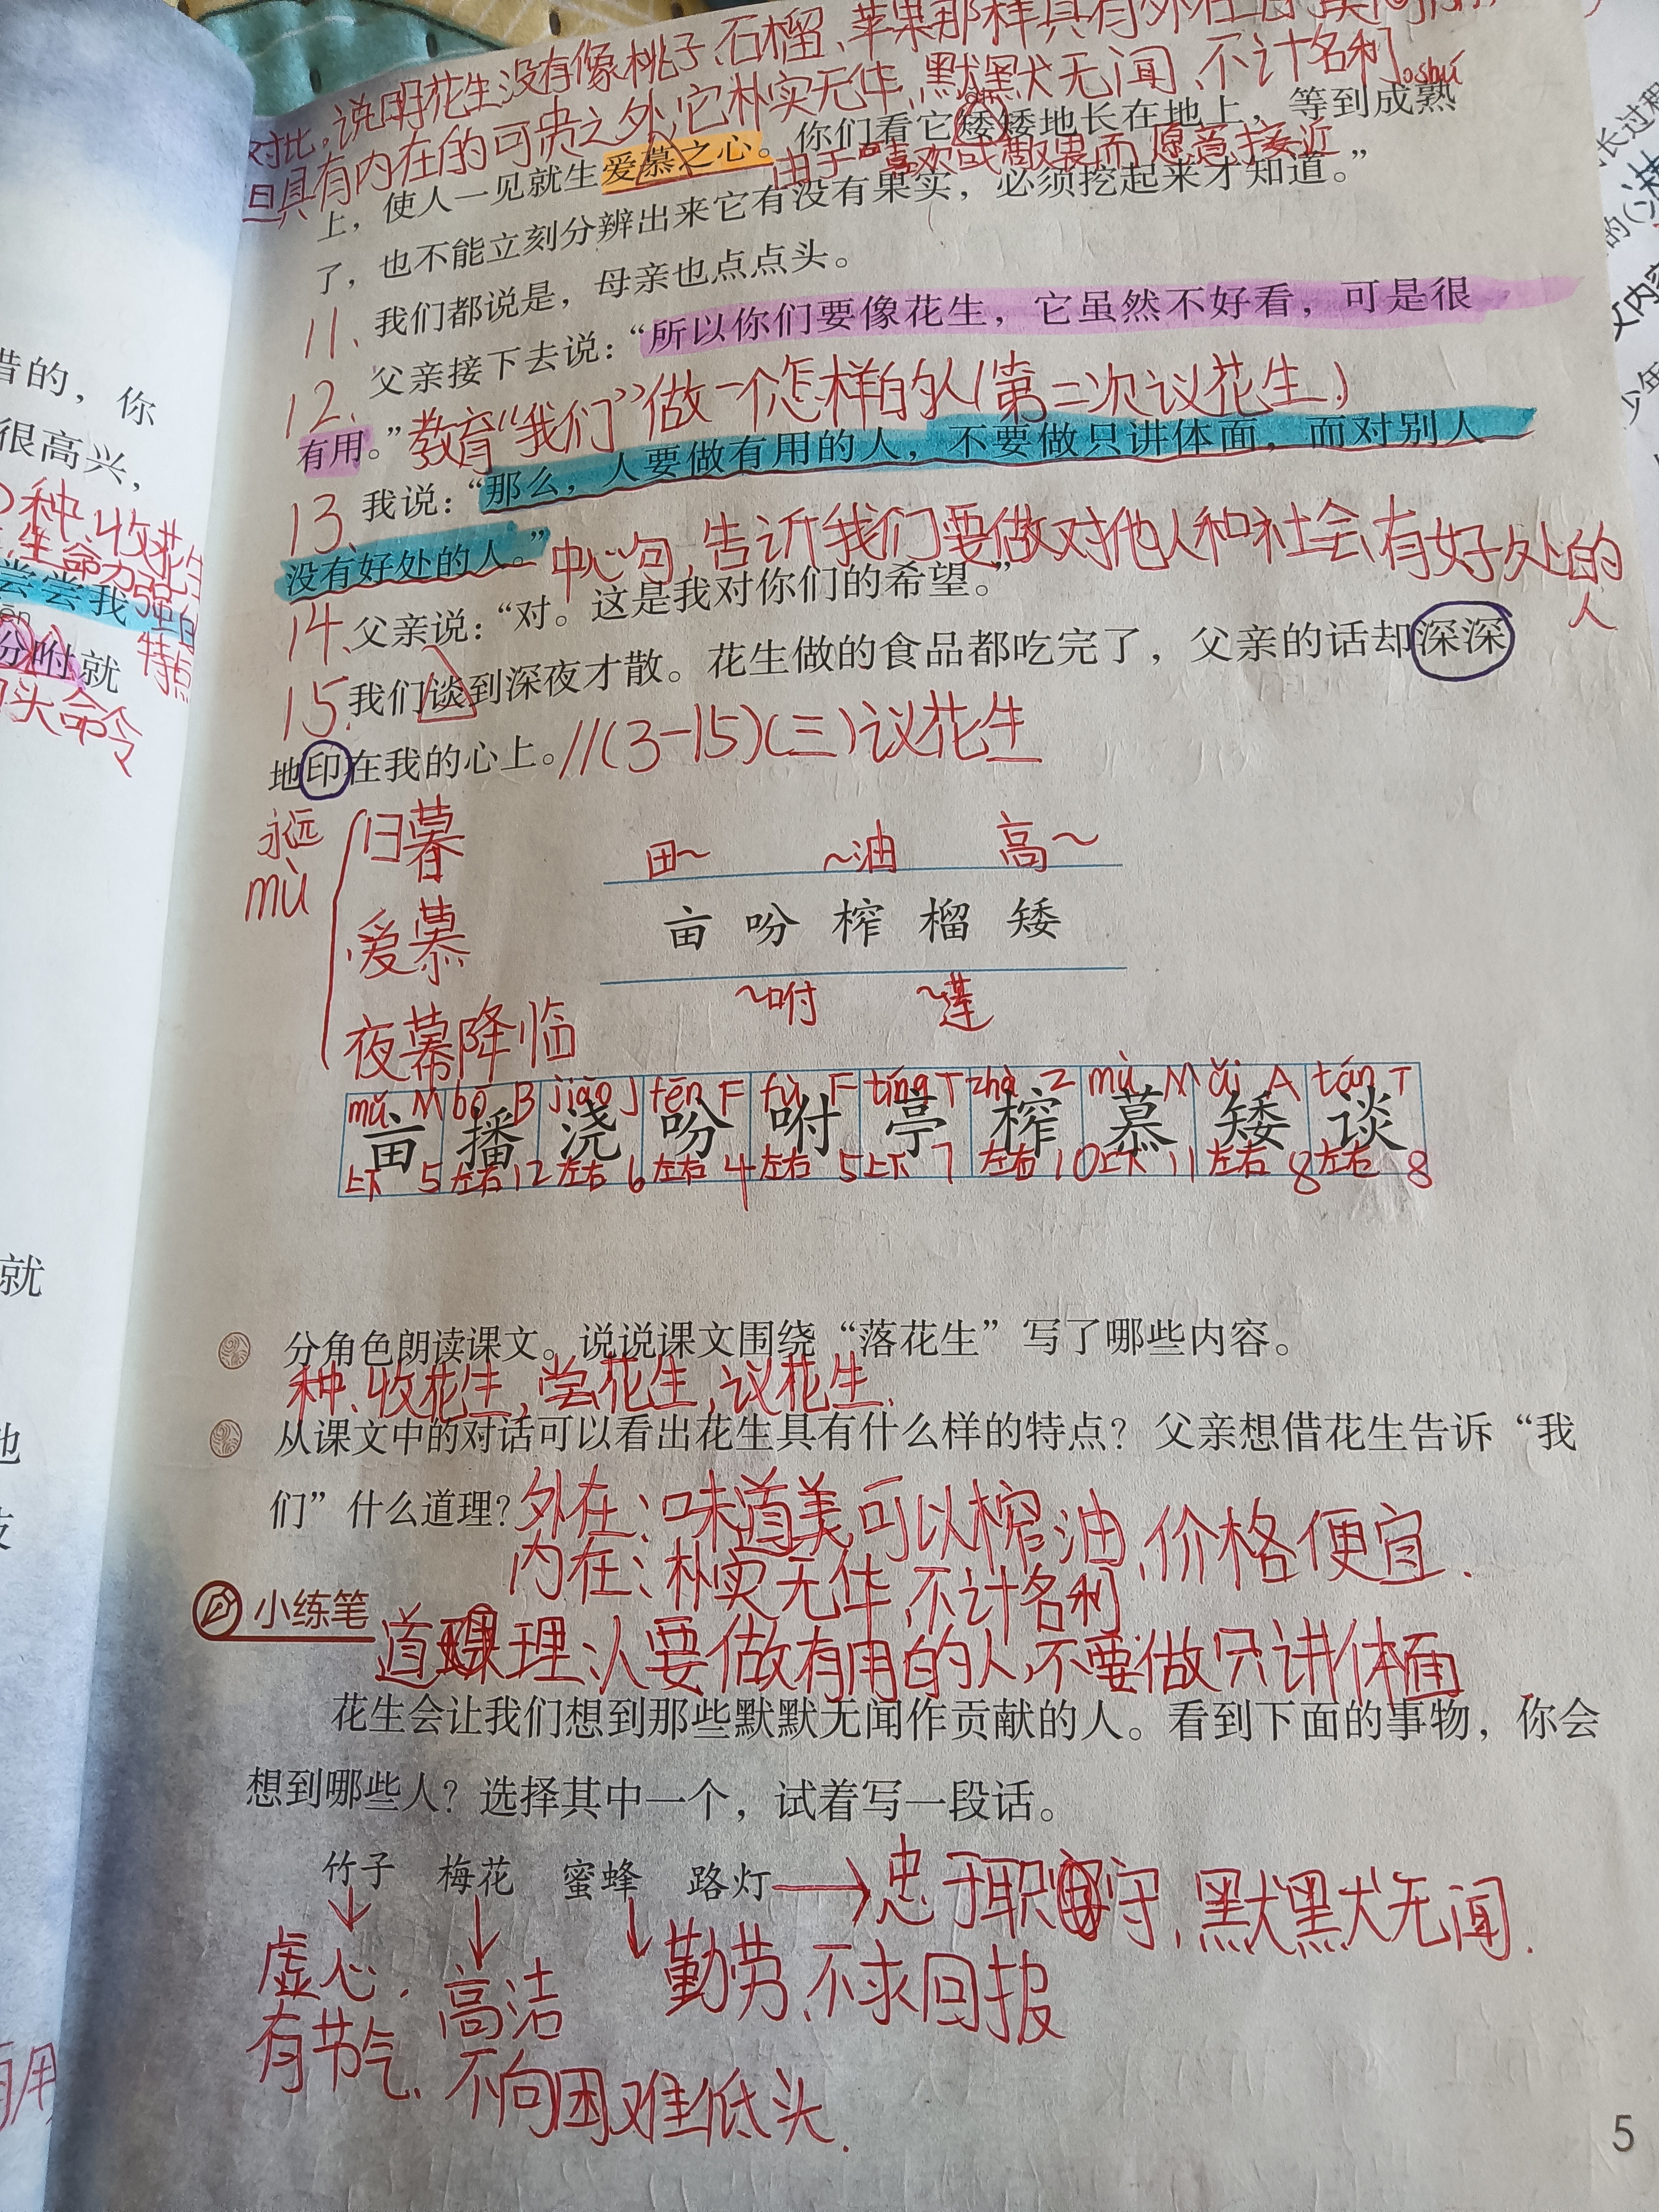 对比，说明花生没有像桃子、石榴、苹果那样具有外在
但具有内在的可贵之处，它朴实无华，默默无闻，不计名利。
shú
上，使人一见就生爱慕之心。你们看它矮矮地长在地上，等到成熟
由于喜欢或敬畏而愿意接近
了，也不能立刻分辨出来它有没有果实，必须挖起来才知道。”
11、我们都说是，母亲也点点头。
12、父亲接下去说：“所以你们要像花生，它虽然不好看，可是很
有用。”教育“我们”做一个怎样的人（第二次议花生）
13、我说：“那么，人要做有用的人，不要做只讲体面，而对别人
没有好处的人。”中心句，告诉我们要做对他人和社会有好处的
人
14、父亲说：“对。这是我对你们的希望。”
15、我们谈到深夜才散。花生做的食品都吃完了，父亲的话却深深
地印在我的心上。//(3-15)(三)议花生
永远
mù
日暮
爱慕
夜幕降临
田~ ~油 高~
亩 吩 榨 榴 矮
~咐 ~莲
mǔ M bō B jiāo J fēn F fù F tíng T zhà Z mù M ǎi A tán T
亩 播 浇 吩 咐 亭 榨 慕 矮 谈
上下 5 左右 12 左右 6 左右 4 左右 5 上下 7 左右 10 上下 11 左右 8 左右 8
分角色朗读课文。说说课文围绕“落花生”写了哪些内容。
种、收花生，尝花生，议花生。
从课文中的对话可以看出花生具有什么样的特点？父亲想借花生告诉“我
们”什么道理？外在：味道美、可以榨油、价格便宜。
内在：朴实无华，不计名利
小练笔
道理：人要做有用的人，不要做只讲体面
花生会让我们想到那些默默无闻作贡献的人。看到下面的事物，你会
想到哪些人？选择其中一个，试着写一段话。
竹子 梅花 蜜蜂 路灯→忠于职守，默默无闻。
虚心，
有节气、
高洁
不向困难低头.
勤劳、不求回报
5
惜的，你
很高兴，
种、收花生
生命力强的
特点
尝尝我
分咐就
口头命令
就